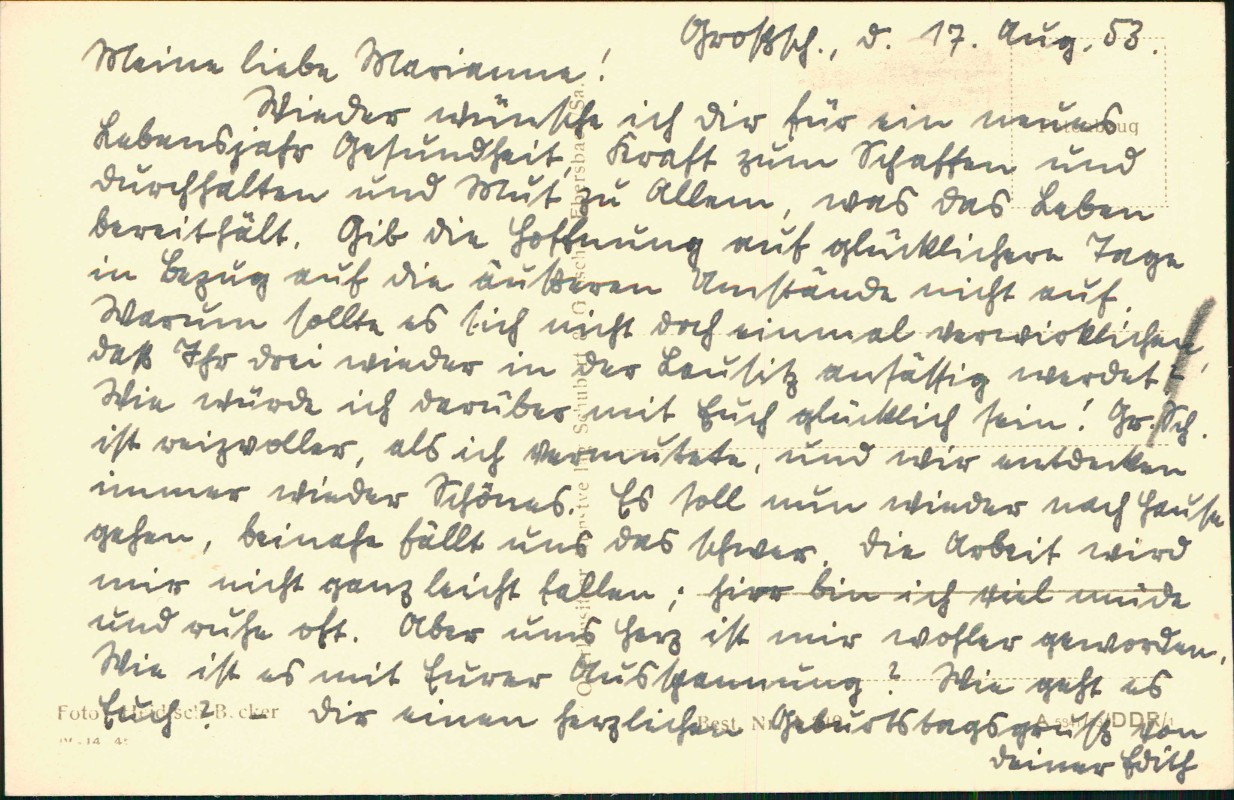 Großsch., d. 17. Aug. 53.
Meine liebe Marianne!
Wieder wünsche ich dir für ein neues
Lebensjahr Gesundheit, Kraft zum Schaffen und
durchhalten und Mut zu Allem, was das Leben
bereithält. Gib die Hoffnung auf glücklichere Tage
in Bezug auf die äußeren Umstände nicht auf.
Warum sollte es sich nicht doch einmal verwirklichen,
daß Ihr drei wieder in der Lausitz ansässig werdet?
Wie würde ich darüber mit Euch glücklich sein! Gr. Sch.
ist reizvoller, als ich vermutete, und wir entdecken
immer wieder Schönes. Es soll nun wieder nach Hause
gehen, beinahe fällt uns das schwer. Die Arbeit wird
mir nicht ganz leicht fallen; hier bin ich viel müde
und ruhe oft. Aber ums Herz ist mir wohler geworden.
Wie ist es mit Eurer Ausspannung? Wie geht es
Euch? - Dir einen herzlichen Geburtstagsgruß von
deiner Edith
Foto
Best. Nr.
DDR